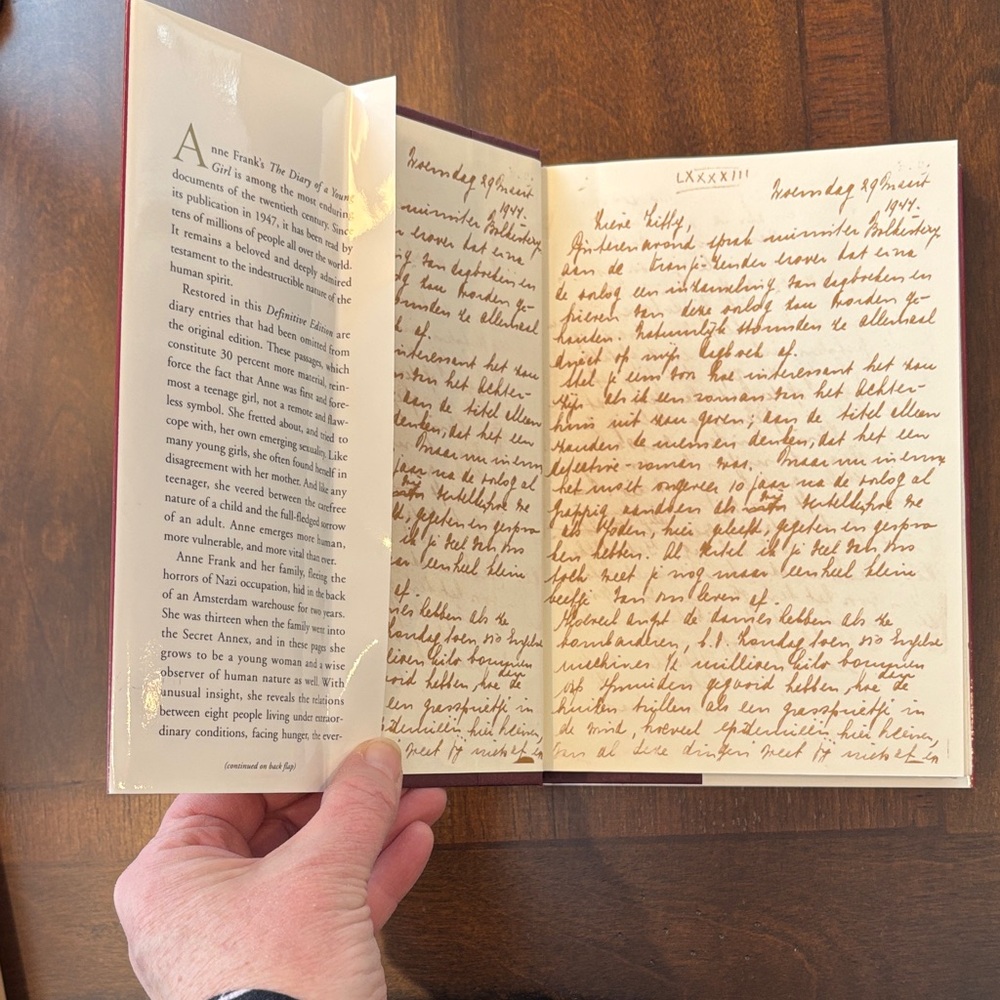 Anne Frank's The Diary of a Young
Girl is among the most enduring
documents of the twentieth century. Since
its publication in 1947, it has been read by
tens of millions of people all over the world.
It remains a beloved and deeply admired
testament to the indestructible nature of the
human spirit.
Restored in this Definitive Edition are
diary entries that had been omitted from
the original edition. These passages, which
constitute 30 percent more material, rein-
force the fact that Anne was first and fore-
most a teenage girl, not a remote and flaw-
less symbol. She fretted about, and tried to
cope with, her own emerging sexuality. Like
many young girls, she often found herself in
disagreement with her mother. And like any
teenager, she veered between the carefree
nature of a child and the full-fledged sorrow
of an adult. Anne emerges more human,
more vulnerable, and more vital than ever.
Anne Frank and her family, fleeing the
horrors of Nazi occupation, hid in the back
of an Amsterdam warehouse for two years.
She was thirteen when the family went into
the Secret Annex, and in these pages she
grows to be a young woman and a wise
observer of human nature as well. With
unusual insight, she reveals the relations
between eight people living under extraor-
dinary conditions, facing hunger, the ever-
(continued on back flap)
Woensdag 29 Maart
1944.
minister Bolkesteyn
erover dat er na
van dagboeken en
zou worden ge-
stormden ze allemaal
af.
interessant het zou
van het Achter-
aan de titel alleen
denken, dat het een
Maar nu in ernst
jaar na de oorlog al
wij vertellen hoe we
gegeten en gespro
ik je veel van ons
een heel klein
af.
hebben als ze
Zondag toen 350 Engelse
millioen kilo bommen
hebben, hoe dan de
een grassprietje in
epidemieën hier heersen,
weet jij niets af en
LXXXXIII
Woensdag 29 Maart
1944.
Lieve Kitty,
Gisterenavond sprak minister Bolkesteyn
aan de Oranje-zender erover dat er na
de oorlog een inzameling van dagboeken en
brieven van deze oorlog zou worden ge-
houden. Natuurlijk stormden ze allemaal
direct op mijn dagboek af.
Stel je eens voor hoe interessant het zou
zijn als ik een roman van het Achter-
huis uit zou geven; aan de titel alleen
zouden de mensen denken, dat het een
detective-roman was. Maar nu in ernst
het moet ongeveer 10 jaar na de oorlog al
grappig aandoen als wij vertellen hoe we
als Joden, hier geleefd, gegeten en gespro
ken hebben. Al vertel ik je veel van ons
toch weet je nog maar een heel klein
beetje van ons leven af.
Hoeveel angst de dames hebben als ze
bombarderen, b.v. Zondag toen 350 Engelse
machines ½ millioen kilo bommen
op Ijmuiden gegooid hebben, hoe dan de
huizen trillen als een grassprietje in
de wind, hoeveel epidemieën hier heersen,
van al deze dingen weet jij niets af en